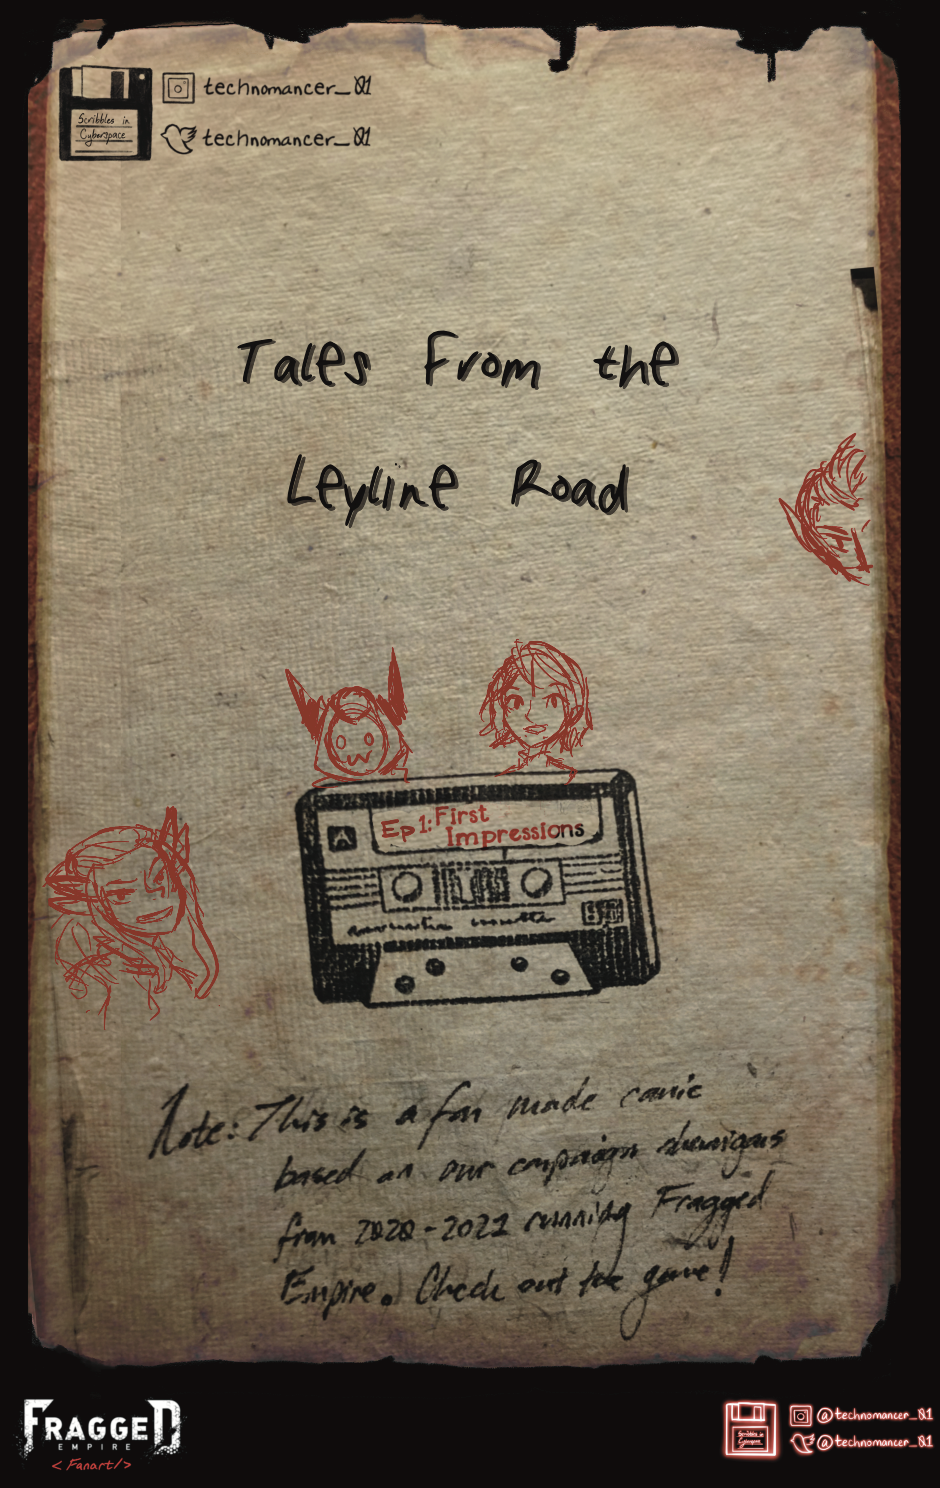 Scribbles in
Cyberspace
technomancer_01
technomancer_01
Tales From the
Leyline Road
Ep 1: First
Impressions
A
Note: This is a fan made comic
based on our campaign shenanigans
from 2020-2021 running Fragged
Empire. Check out the game!
FRAGGED
EMPIRE
<Fanart/>
Scribbles in
Cyberspace
@technomancer_01
@technomancer_01